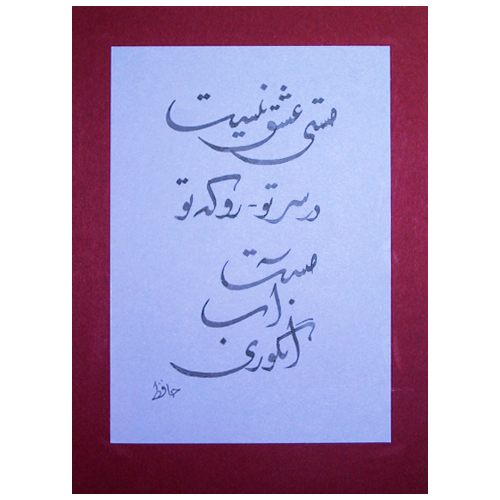 مستی عشق نیست
در سر تو - رو که تو
مست
آب
انگوری
حافظ